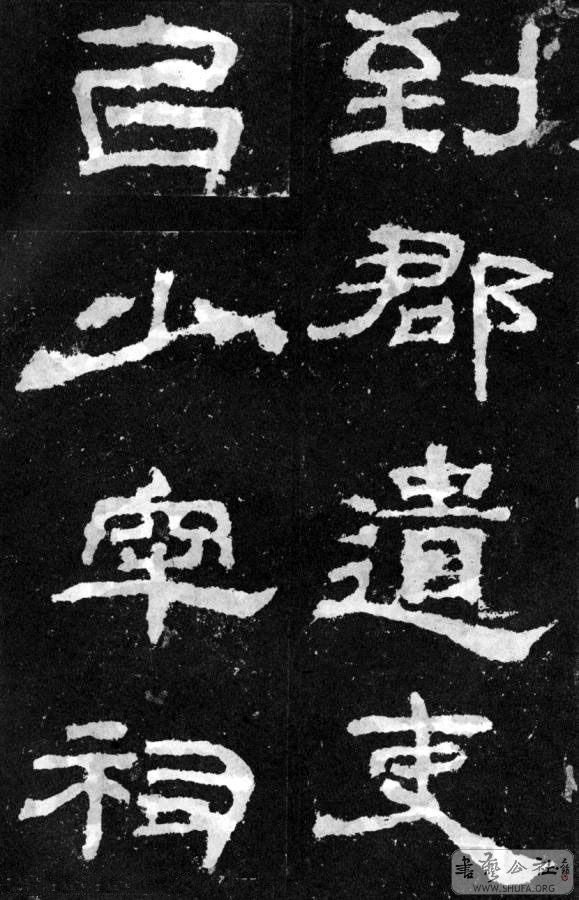 到郡遣吏
㠯少牢祠
書藝公社
WWW.SHUFA.ORG